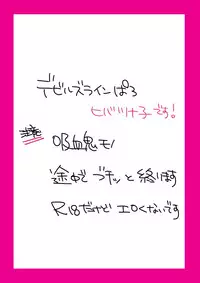 デビルズラインぱろ
ヒバツナ子です!
注意
吸血鬼モノ
途中で ブチッと終ります
R18だけど エロくないです